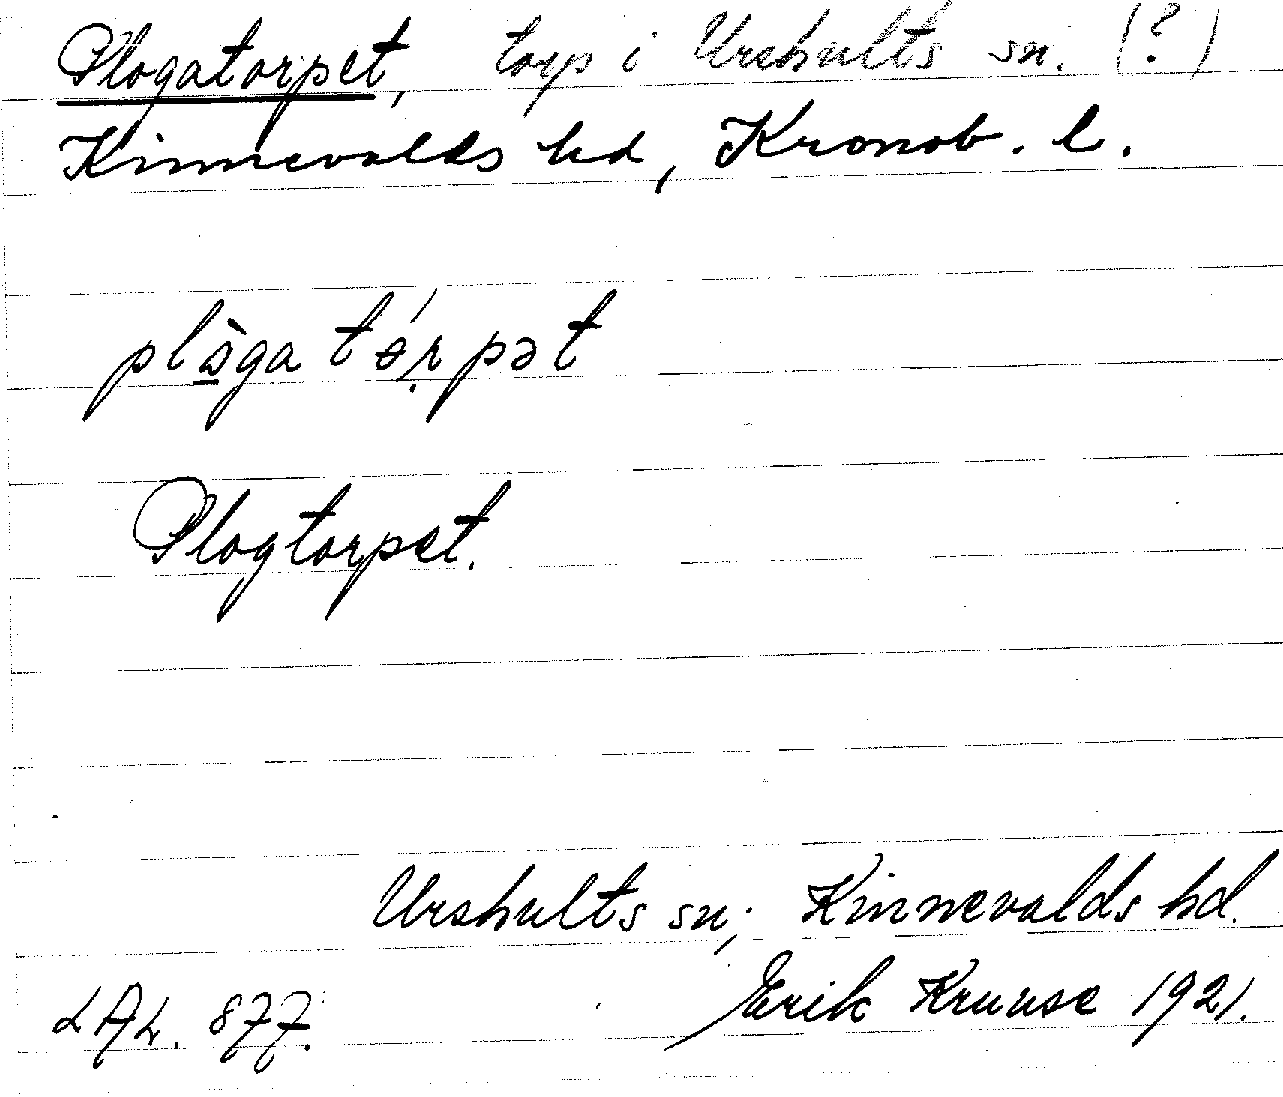 Plogatorpet, torp i Urshults sn. (?)
Kinnevalds hd, Kronob. l.
plɔ̀ga tɵ́r̥pət
Plogtorpet.
Urshults sn; Kinnevalds hd.
Erik Kruuse 1921.
LAL. 877.